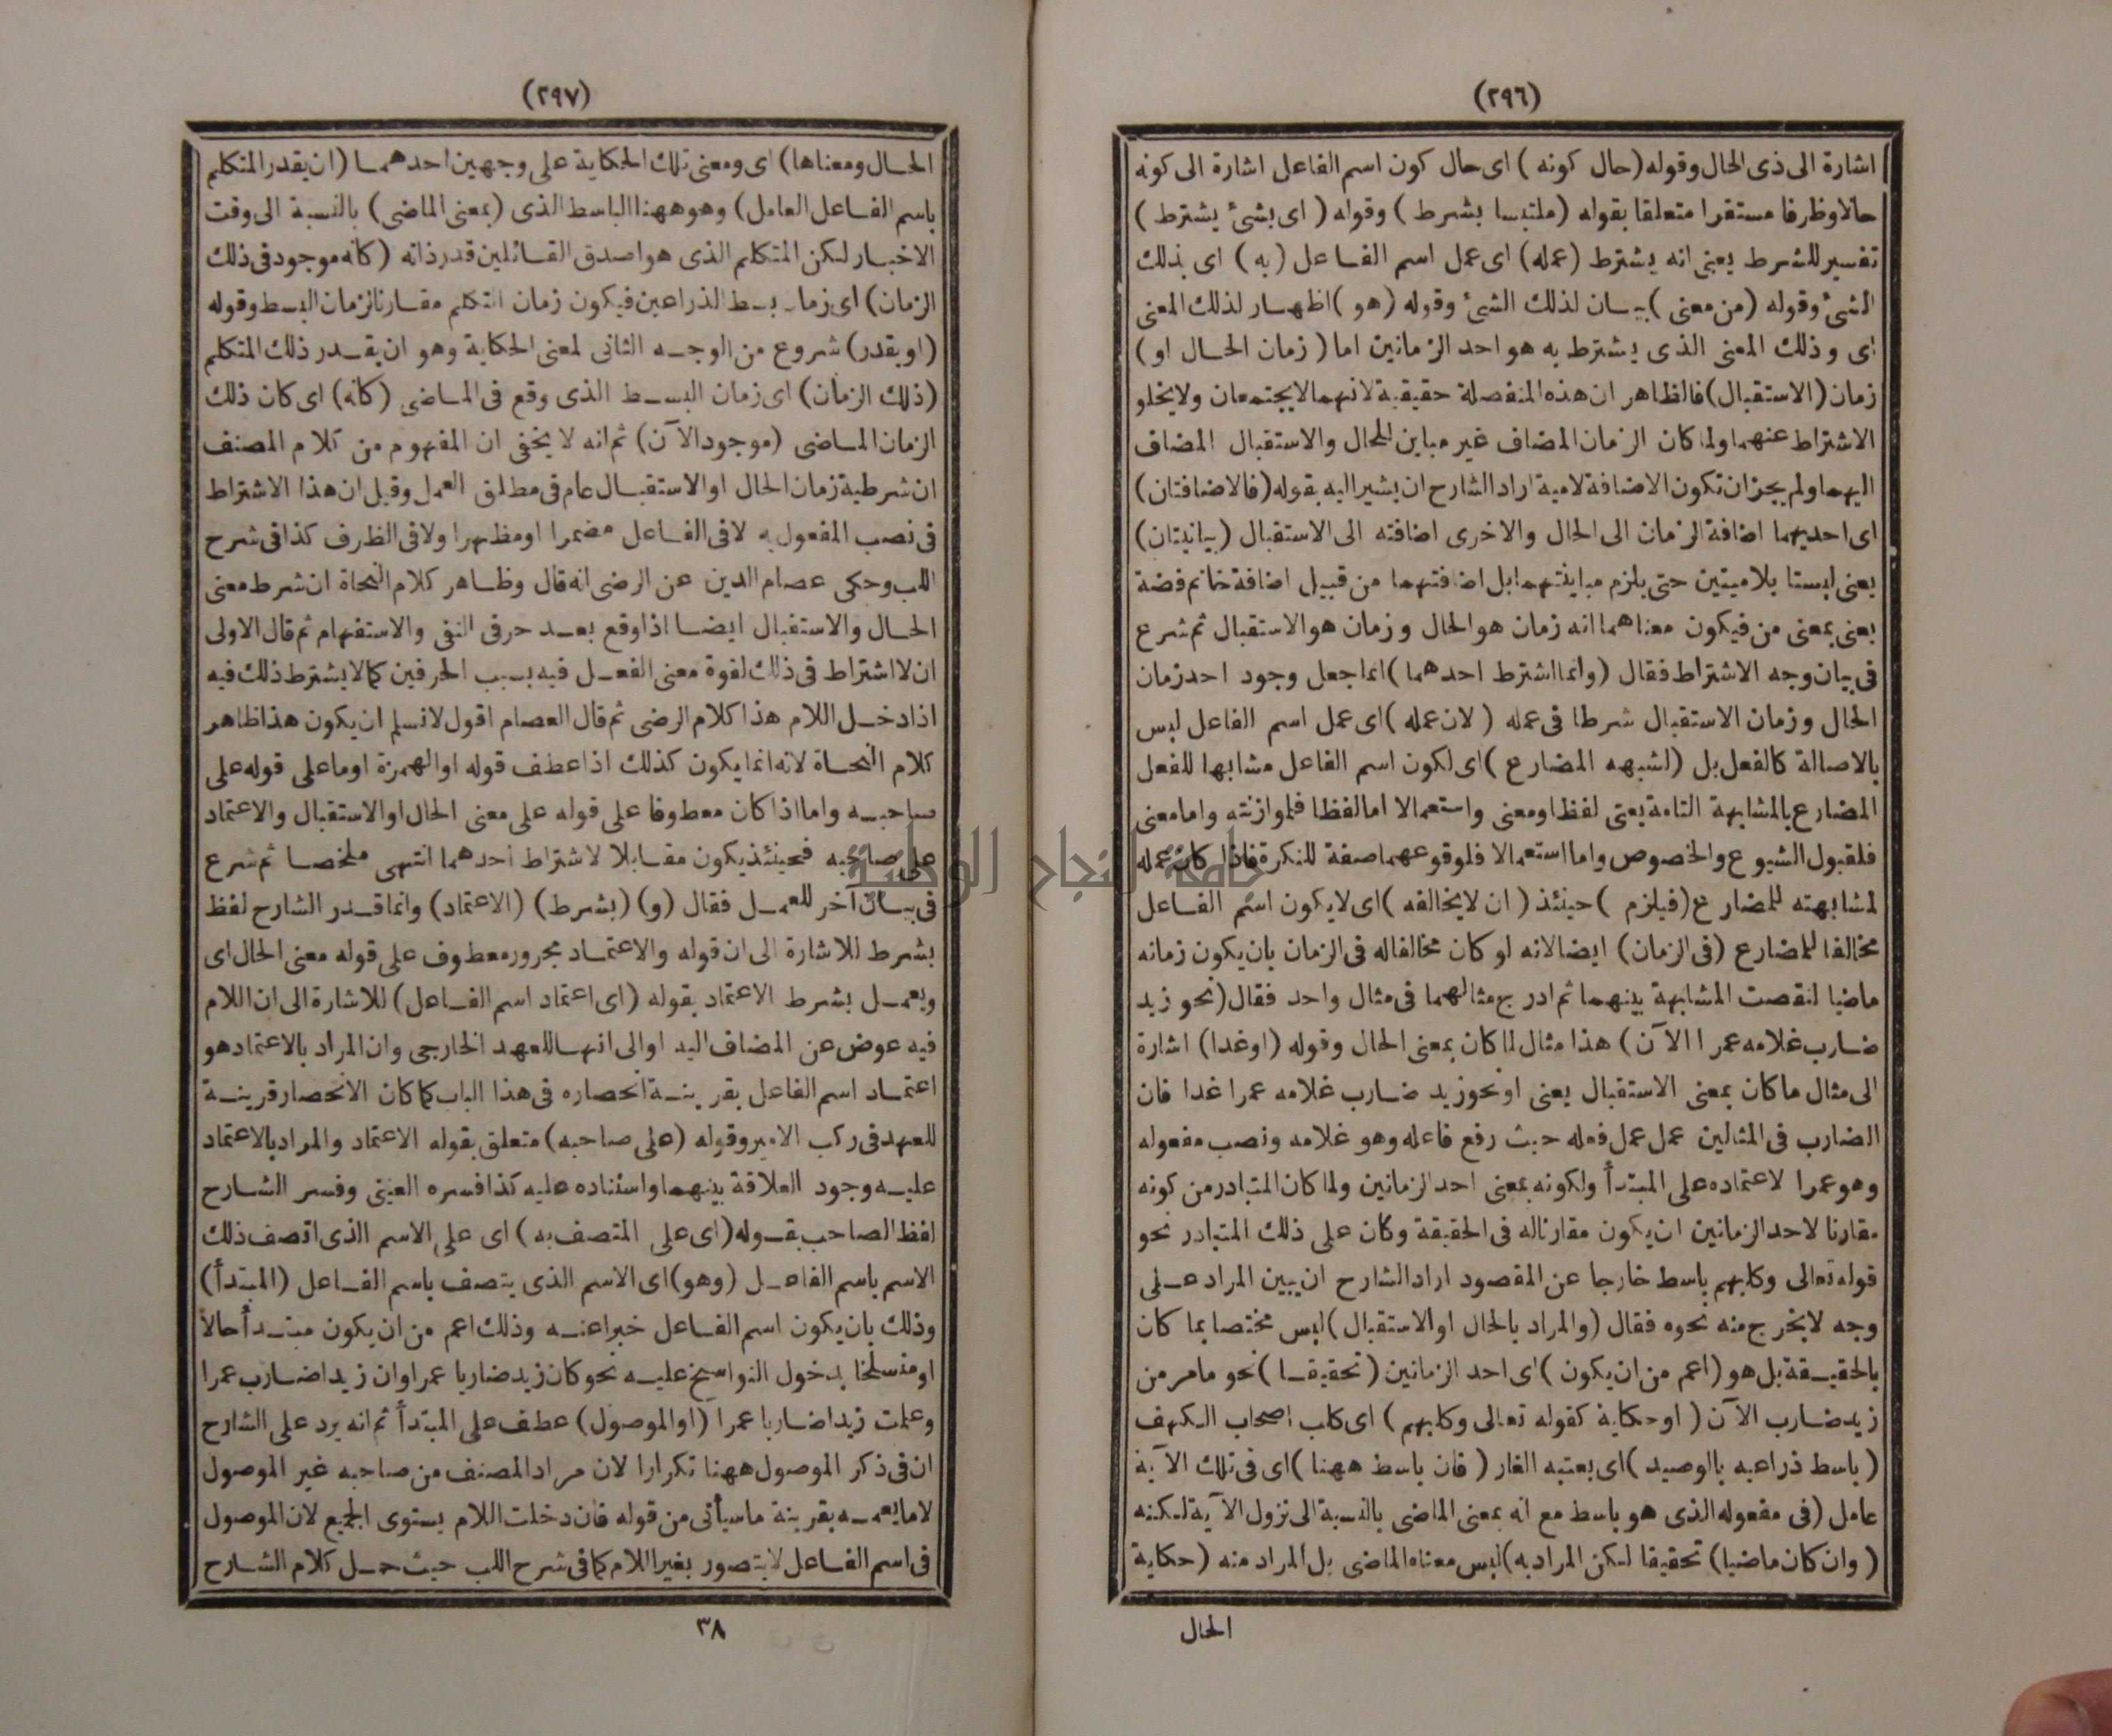 (٢٩٦)
اشارة الى ذى الحال وقوله (حال كونه) اى حال كون اسم الفاعل اشارة الى كونه
حالا وظرفا مستقرا متعلقا بقوله (ملتبسا بشرط) وقوله (اى بشئ يشترط)
تفسير للشرط يعنى انه يشترط (عمله) اى عمل اسم الفاعل (به) اى بذلك
الشئ وقوله (من معنى) بيان لذلك الشئ وقوله (هو) اظهار لذلك المعنى
اى وذلك المعنى الذى يشترط به هو احد الزمانين اما (زمان الحال او)
زمان (الاستقبال) فالظاهر ان هذه المنفصلة حقيقية لانهما لا يجتمعان ولا يخلو
الاشتراط عنهما ولما كان الزمان المضاف غير مباين للحال والاستقبال المضاف
اليهما ولم يجز ان تكون الاضافة لامية اراد الشارح ان يشير اليه بقوله (فالاضافتان)
اى احديهما اضافة الزمان الى الحال والاخرى اضافته الى الاستقبال (بيانيتان)
يعنى ليستا بلاميتين حتى يلزم مباينتهما بل اضافتهما من قبيل اضافة خاتم فضة
يعنى بمعنى من فيكون معناهما انه زمان هو الحال وزمان هو الاستقبال ثم شرع
فى بيان وجه الاشتراط فقال (وانما اشترط احدهما) انما جعل وجود احد زمان
الحال وزمان الاستقبال شرطا فى عمله (لان عمله) اى عمل اسم الفاعل ليس
بالاصالة كالفعل بل (لشبهه المضارع) اى لكون اسم الفاعل مشابها للفعل
المضارع بالمشابهة التامة يعنى لفظا ومعنى واستعمالا اما لفظا فلموازنته واما معنى
فلقبول الشيوع والخصوص واما استعمالا فلوقوعهما صفة للنكرة فاذا كان عمله
لمشابهته للمضارع (فيلزم) حينئذ (ان لا يخالفه) اى لا يكون اسم الفاعل
مخالفا للمضارع (فى الزمان) ايضا لانه لو كان مخالفا له فى الزمان بان يكون زمانه
ماضيا لنقصت المشابهة بينهما ثم ادرج مثالهما فى مثال واحد فقال (نحو زيد
ضارب غلامه عمرا الآن) هذا مثال لما كان بمعنى الحال وقوله (او غدا) اشارة
الى مثال ما كان بمعنى الاستقبال يعنى او نحو زيد ضارب غلامه عمرا غدا فان
الضارب فى المثالين عمل عمل فعله حيث رفع فاعله وهو غلامه ونصب مفعوله
وهو عمرا لاعتماده على المبتدأ ولكونه بمعنى احد الزمانين ولما كان المتبادر من كونه
مقارنا لاحد الزمانين ان يكون مقارنا له فى الحقيقة وكان على ذلك المتبادر نحو
قوله تعالى وكلبهم باسط خارجا عن المقصود اراد الشارح ان يبين المراد على
وجه لا يخرج منه نحوه فقال (والمراد بالحال او الاستقبال) ليس مختصا بما كان
بالحقيقة بل هو (اعم من ان يكون) اى احد الزمانين (تحقيقا) نحو ما مر من
زيد ضارب الآن (او حكاية كقوله تعالى وكلبهم) اى كلب اصحاب الكهف
(باسط ذراعيه بالوصيد) اى بعتبه الغار (فان باسط ههنا) اى فى تلك الآية
عامل (فى مفعوله الذى هو باسط مع انه بمعنى الماضى بالنسبة الى نزول الآية لكنه
(وان كان ماضيا) تحقيقا لكن المراد به) ليس معناه الماضى بل المراد منه (حكاية
الحال
(٢٩٧)
الحال ومعناها) اى ومعنى تلك الحكاية على وجهين احدهما (ان يقدر المتكلم
باسم الفاعل العامل) وهو ههنا الباسط الذى (بمعنى الماضى) بالنسبة الى وقت
الاخبار لكن المتكلم الذى هو اصدق القائلين قدر ذاته (كانه موجود فى ذلك
الزمان) اى زمان بسط الذراعين فيكون زمان التكلم مقارنا لزمان البسط وقوله
(او يقدر) شروع من الوجه الثانى لمعنى الحكاية وهو ان يقدر ذلك المتكلم
(ذلك الزمان) اى زمان البسط الذى وقع فى الماضى (كانه) اى كان ذلك
الزمان الماضى (موجود الآن) ثم انه لا يخفى ان المفهوم من كلام المصنف
ان شرطية زمان الحال او الاستقبال عام فى مطلق العمل وقيل ان هذا الاشتراط
فى نصب المفعول به لا فى الفاعل مضمرا او مظهرا ولا فى الظرف كذا فى شرح
اللب وحكى عصام الدين عن الرضى انه قال وظاهر كلام النحاة ان شرط معنى
الحال والاستقبال ايضا اذا وقع بعد حرفى النفى والاستفهام ثم قال الاولى
ان لا اشتراط فى ذلك لقوة معنى الفعل فيه بسبب الحرفين كما لا يشترط ذلك فيه
اذا دخل اللام هذا كلام الرضى ثم قال العصام اقول لا نسلم ان يكون هذا ظاهر
كلام النحاة لانه انما يكون كذلك اذا عطف قوله او الهمزة او ما على قوله على
صاحبه واما اذا كان معطوفا على قوله على معنى الحال او الاستقبال والاعتماد
على صاحبه فحينئذ يكون مقابلا لاشتراط احدهما انتهى ملخصا ثم شرع
فى بيان آخر للعمل فقال (و) (بشرط) (الاعتماد) وانما قدر الشارح لفظ
بشرط للاشارة الى ان قوله والاعتماد مجرور معطوف على قوله معنى الحال اى
ويعمل بشرط الاعتماد بقوله (اى اعتماد اسم الفاعل) للاشارة الى ان اللام
فيه عوض عن المضاف اليه او الى انها للعهد الخارجى وان المراد بالاعتماد هو
اعتماد اسم الفاعل بقرينة انحصاره فى هذا الباب كما كان الانحصار قرينة
للعهد فى ركب الامير وقوله (على صاحبه) متعلق بقوله الاعتماد والمراد بالاعتماد
عليه وجود العلاقة بينهما واستناده عليه كذا فسره العينى وفسر الشارح
لفظ الصاحب بقوله (اى على المتصف به) اى على الاسم الذى اتصف ذلك
الاسم باسم الفاعل (وهو) اى الاسم الذى يتصف باسم الفاعل (المبتدأ)
وذلك بان يكون اسم الفاعل خبرا عنه وذلك اعم من ان يكون مبتدأ حالا
او منسلخا بدخول النواسخ عليه نحو كان زيد ضاربا عمرا وان زيدا ضارب عمرا
وعلمت زيدا ضاربا عمرا (او الموصول) عطف على المبتدأ ثم انه يرد على الشارح
ان فى ذكر الموصول ههنا تكرارا لان مراد المصنف من صاحبه غير الموصول
لا ما يعمه بقرينة ما سيأتى من قوله فان دخلت اللام يستوى الجميع لان الموصول
فى اسم الفاعل لا يتصور بغير اللام كما فى شرح اللب حيث حمل كلام الشارح
٣٨
جامعة النجاح الوطنية